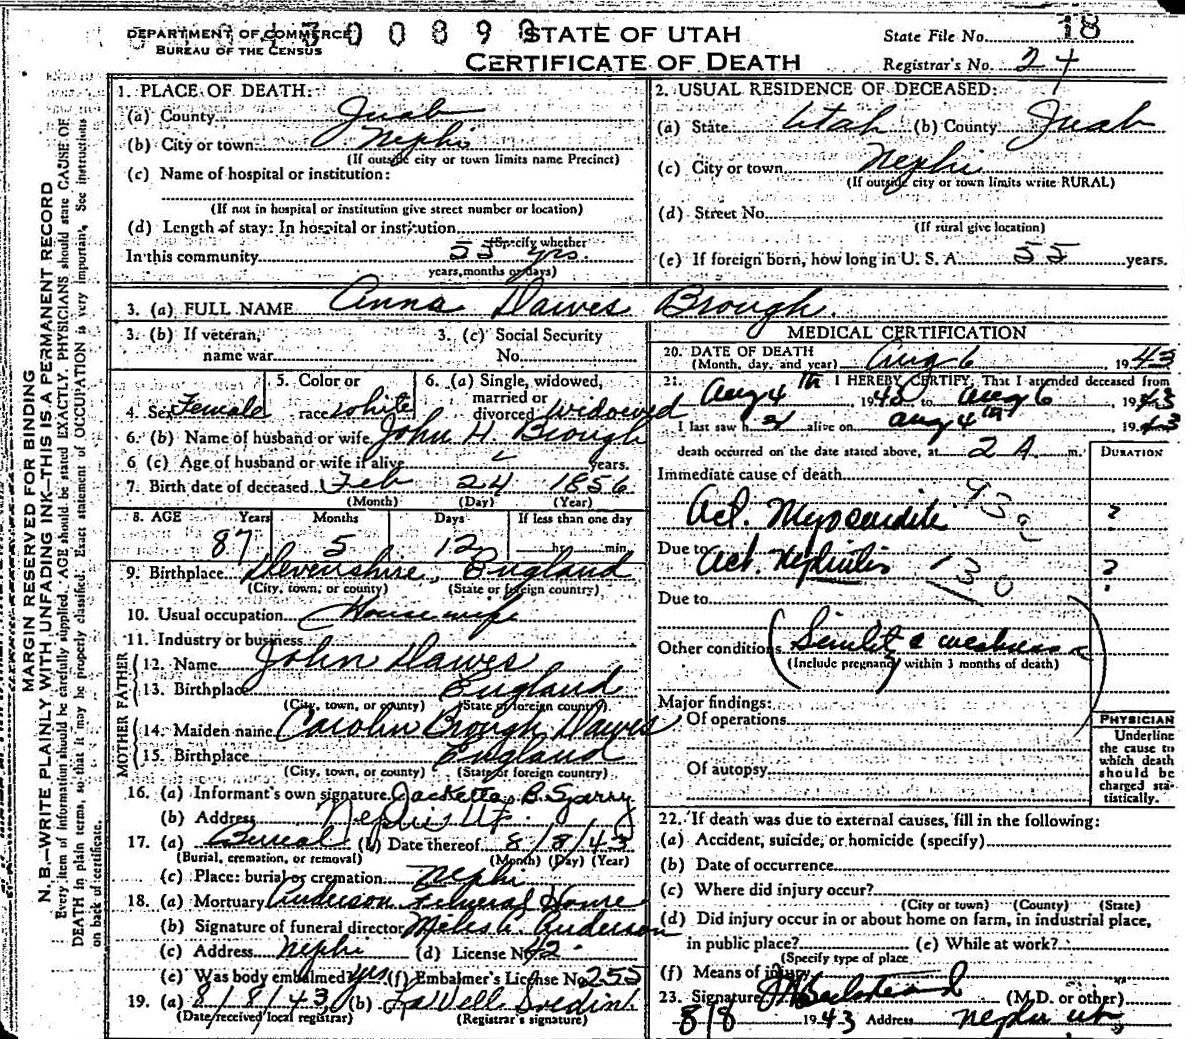 DEPARTMENT OF COMMERCE
BUREAU OF THE CENSUS
4300890
STATE OF UTAH
CERTIFICATE OF DEATH
State File No. 18
Registrar's No. 24
MARGIN RESERVED FOR BINDING
N. B.—WRITE PLAINLY WITH UNFADING INK—THIS IS A PERMANENT RECORD
Every item of information should be carefully supplied. AGE should be stated EXACTLY. PHYSICIANS should state CAUSE OF
DEATH in plain terms, so that it may be properly classified. Exact statement of OCCUPATION is very important. See instructions
on back of certificate.
1. PLACE OF DEATH:
(a) County Juab
(b) City or town Nephi
(If outside city or town limits name Precinct)
(c) Name of hospital or institution:
(If not in hospital or institution give street number or location)
(d) Length of stay: In hospital or institution
(Specify whether
In this community 55 yrs.
years, months or days)
2. USUAL RESIDENCE OF DECEASED:
(a) State Utah (b) County Juab
(c) City or town Nephi
(If outside city or town limits write RURAL)
(d) Street No.
(If rural give location)
(e) If foreign born, how long in U. S. A. 55 years.
3. (a) FULL NAME Anna Dawes Brough.
3. (b) If veteran, name war
3. (c) Social Security No.
4. Sex Female
5. Color or race white
6. (a) Single, widowed, married or divorced widowed
6. (b) Name of husband or wife John H. Brough
6 (c) Age of husband or wife if alive years.
7. Birth date of deceased Feb 24 1856
(Month) (Day) (Year)
8. AGE Years Months Days If less than one day
87 5 12 hr. min.
9. Birthplace Devenshire, England
(City, town, or county) (State or foreign country)
10. Usual occupation Housewife
11. Industry or business
FATHER
12. Name John Dawes
13. Birthplace England
(City, town, or county) (State or foreign country)
MOTHER
14. Maiden name Carolin Brough Dawes
15. Birthplace England
(City, town, or county) (State or foreign country)
16. (a) Informant's own signature Jacketta B. Sperry
(b) Address Nephi Ut.
17. (a) Bureal (b) Date thereof 8/8/43
(Burial, cremation, or removal) (Month) (Day) (Year)
(c) Place: burial or cremation Nephi
18. (a) Mortuary Anderson Funeral Home
(b) Signature of funeral director Miles A. Anderson
(c) Address Nephi (d) License No. 42
(e) Was body embalmed yes (f) Embalmer's License No. 255
19. (a) 8/8/43 (b)
(Date received local registrar) (Registrar's signature)
MEDICAL CERTIFICATION
20. DATE OF DEATH
(Month, day, and year) Aug 6, 1943
21. I HEREBY CERTIFY, That I attended deceased from
Aug 4th, 1943 to Aug 6, 1943
I last saw h alive on aug 4th, 1943
death occurred on the date stated above, at 2 A. m.
DURATION
Immediate cause of death
Act. Myocardite ?
Due to Act. Nephritis ?
130
Due to
Other conditions (Senility & weakness)
(Include pregnancy within 3 months of death)
Major findings:
Of operations
Of autopsy
PHYSICIAN
Underline
the cause to
which death
should be
charged sta-
tistically.
22. If death was due to external causes, fill in the following:
(a) Accident, suicide, or homicide (specify)
(b) Date of occurrence
(c) Where did injury occur?
(City or town) (County) (State)
(d) Did injury occur in or about home on farm, in industrial place,
in public place? (e) While at work?
(Specify type of place
(f) Means of injury
23. Signature (M.D. or other)
8/8 1943 Address Nephi Ut.